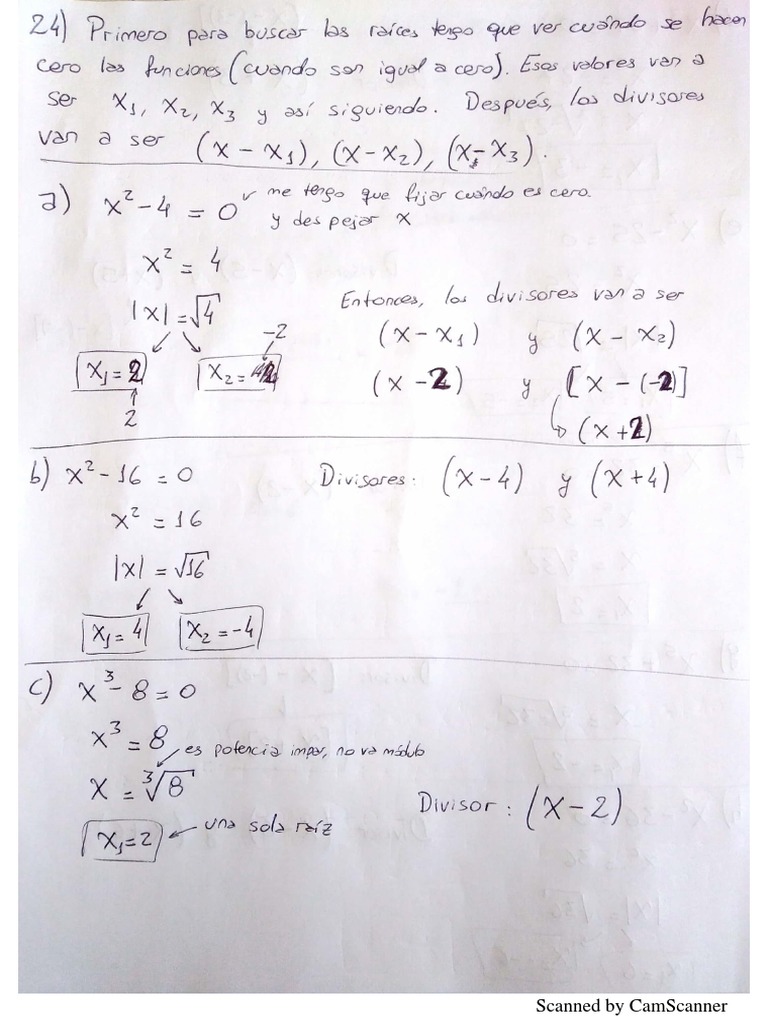 24) Primero para buscar las raíces tengo que ver cuándo se hacen
cero las funciones (cuando son igual a cero). Esos valores van a
ser x₁, x₂, x₃ y así siguiendo. Después, los divisores
van a ser (x - x₁), (x - x₂), (x - x₃).
a) x² - 4 = 0 me tengo que fijar cuándo es cero.
y despejar x
x² = 4
|x| = √4
Entonces, los divisores van a ser
-2
(x - x₁) y (x - x₂)
x₁ = 2 x₂ = -2
(x - 2) y [x - (-2)]
2
(x + 2)
b) x² - 16 = 0 Divisores: (x - 4) y (x + 4)
x² = 16
|x| = √16
x₁ = 4 x₂ = -4
c) x³ - 8 = 0
x³ = 8
es potencia impar, no va módulo
x = ³√8
Divisor: (x - 2)
x₁ = 2 una sola raíz
Scanned by CamScanner